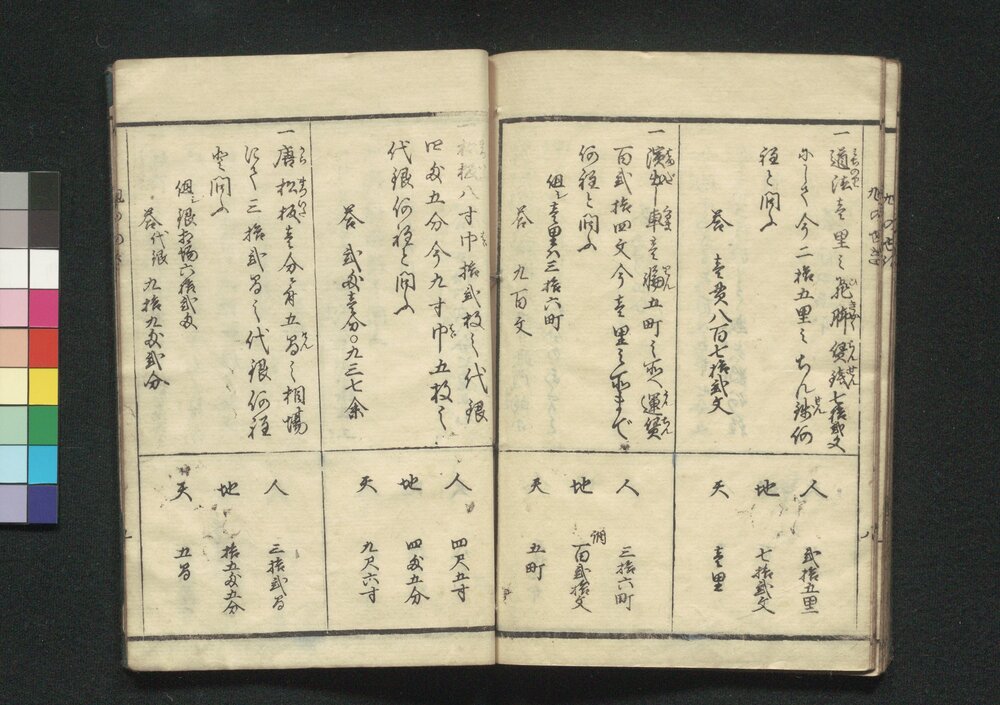 一道法壱里之飛脚賃銭七拾弐文
にして今二拾五里之ちん銭何
程と問ふ
答 壱貫八百七拾弐文
人 弐拾五里
地 七拾弐文
天 壱里
車壱輌五町之所へ運賃
百弐拾四文今壱里之所まで
何程と問ふ
但壱里ハ三拾六町
答 九百文
人 三拾六町
地 調百弐拾文
天 五町
一松板八寸巾拾弐枚之代銀
四匁五分今九寸巾五枚之
代銀何程と問ふ
答 弐匁壱分〇九三七余
人 四尺五寸
地 四匁五分
天 九尺六寸
一唐松板壱分ニ付五間之相場
にて三拾弐間之代銀何程
と問ふ
但銀相場六拾弐匁
答代銀 九拾九匁弐分
人 三拾弐間
地 拾五匁五分
天 五間